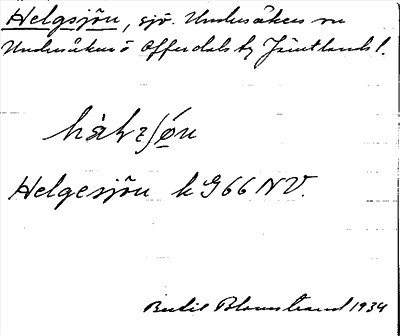 Helgsjön, sjö. Undersåkers sn
Undersåkers o Offerdals tg Jämtlands l.
hàlvsjön
Helgesjön k G66 NV.
Bertil Blomstrand 1934